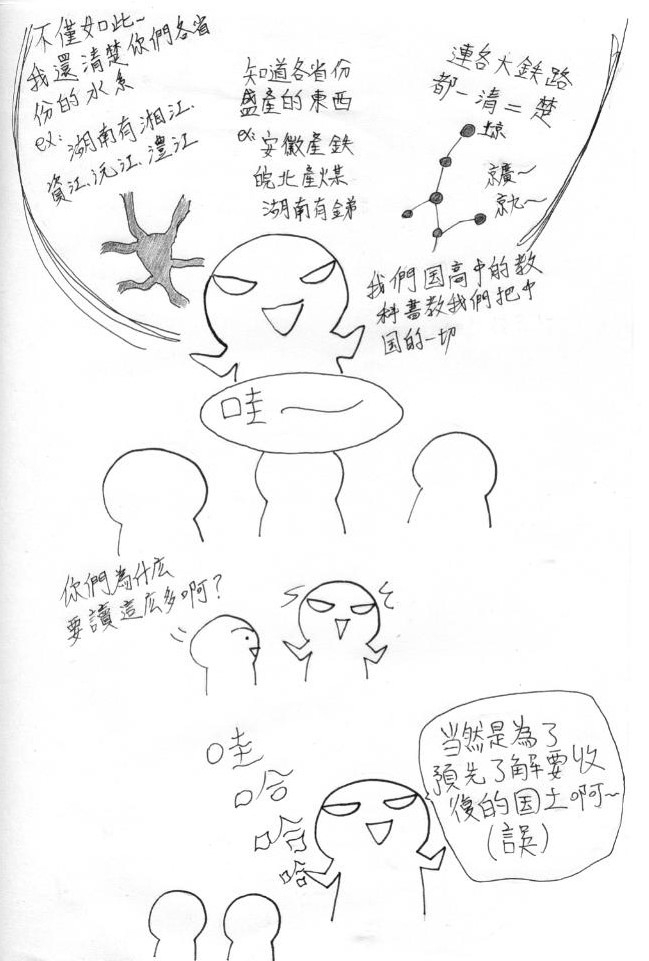 不僅如此~
我還清楚你們各省
份的水系
ex: 湖南有湘江、
資江、沅江、澧江
知道各省份
盛產的東西
ex: 安徽產鉄
皖北產煤
湖南有銻
連各大鉄路
都一清二楚
北京
京廣~
京九~
我們国高中的教
科書教我們把中
国的一切
哇~
你們為什厶
要讀這厶多啊?
哇
哈
哈
哈
当然是為了
預先了解要收
復的国土啊~
(誤)